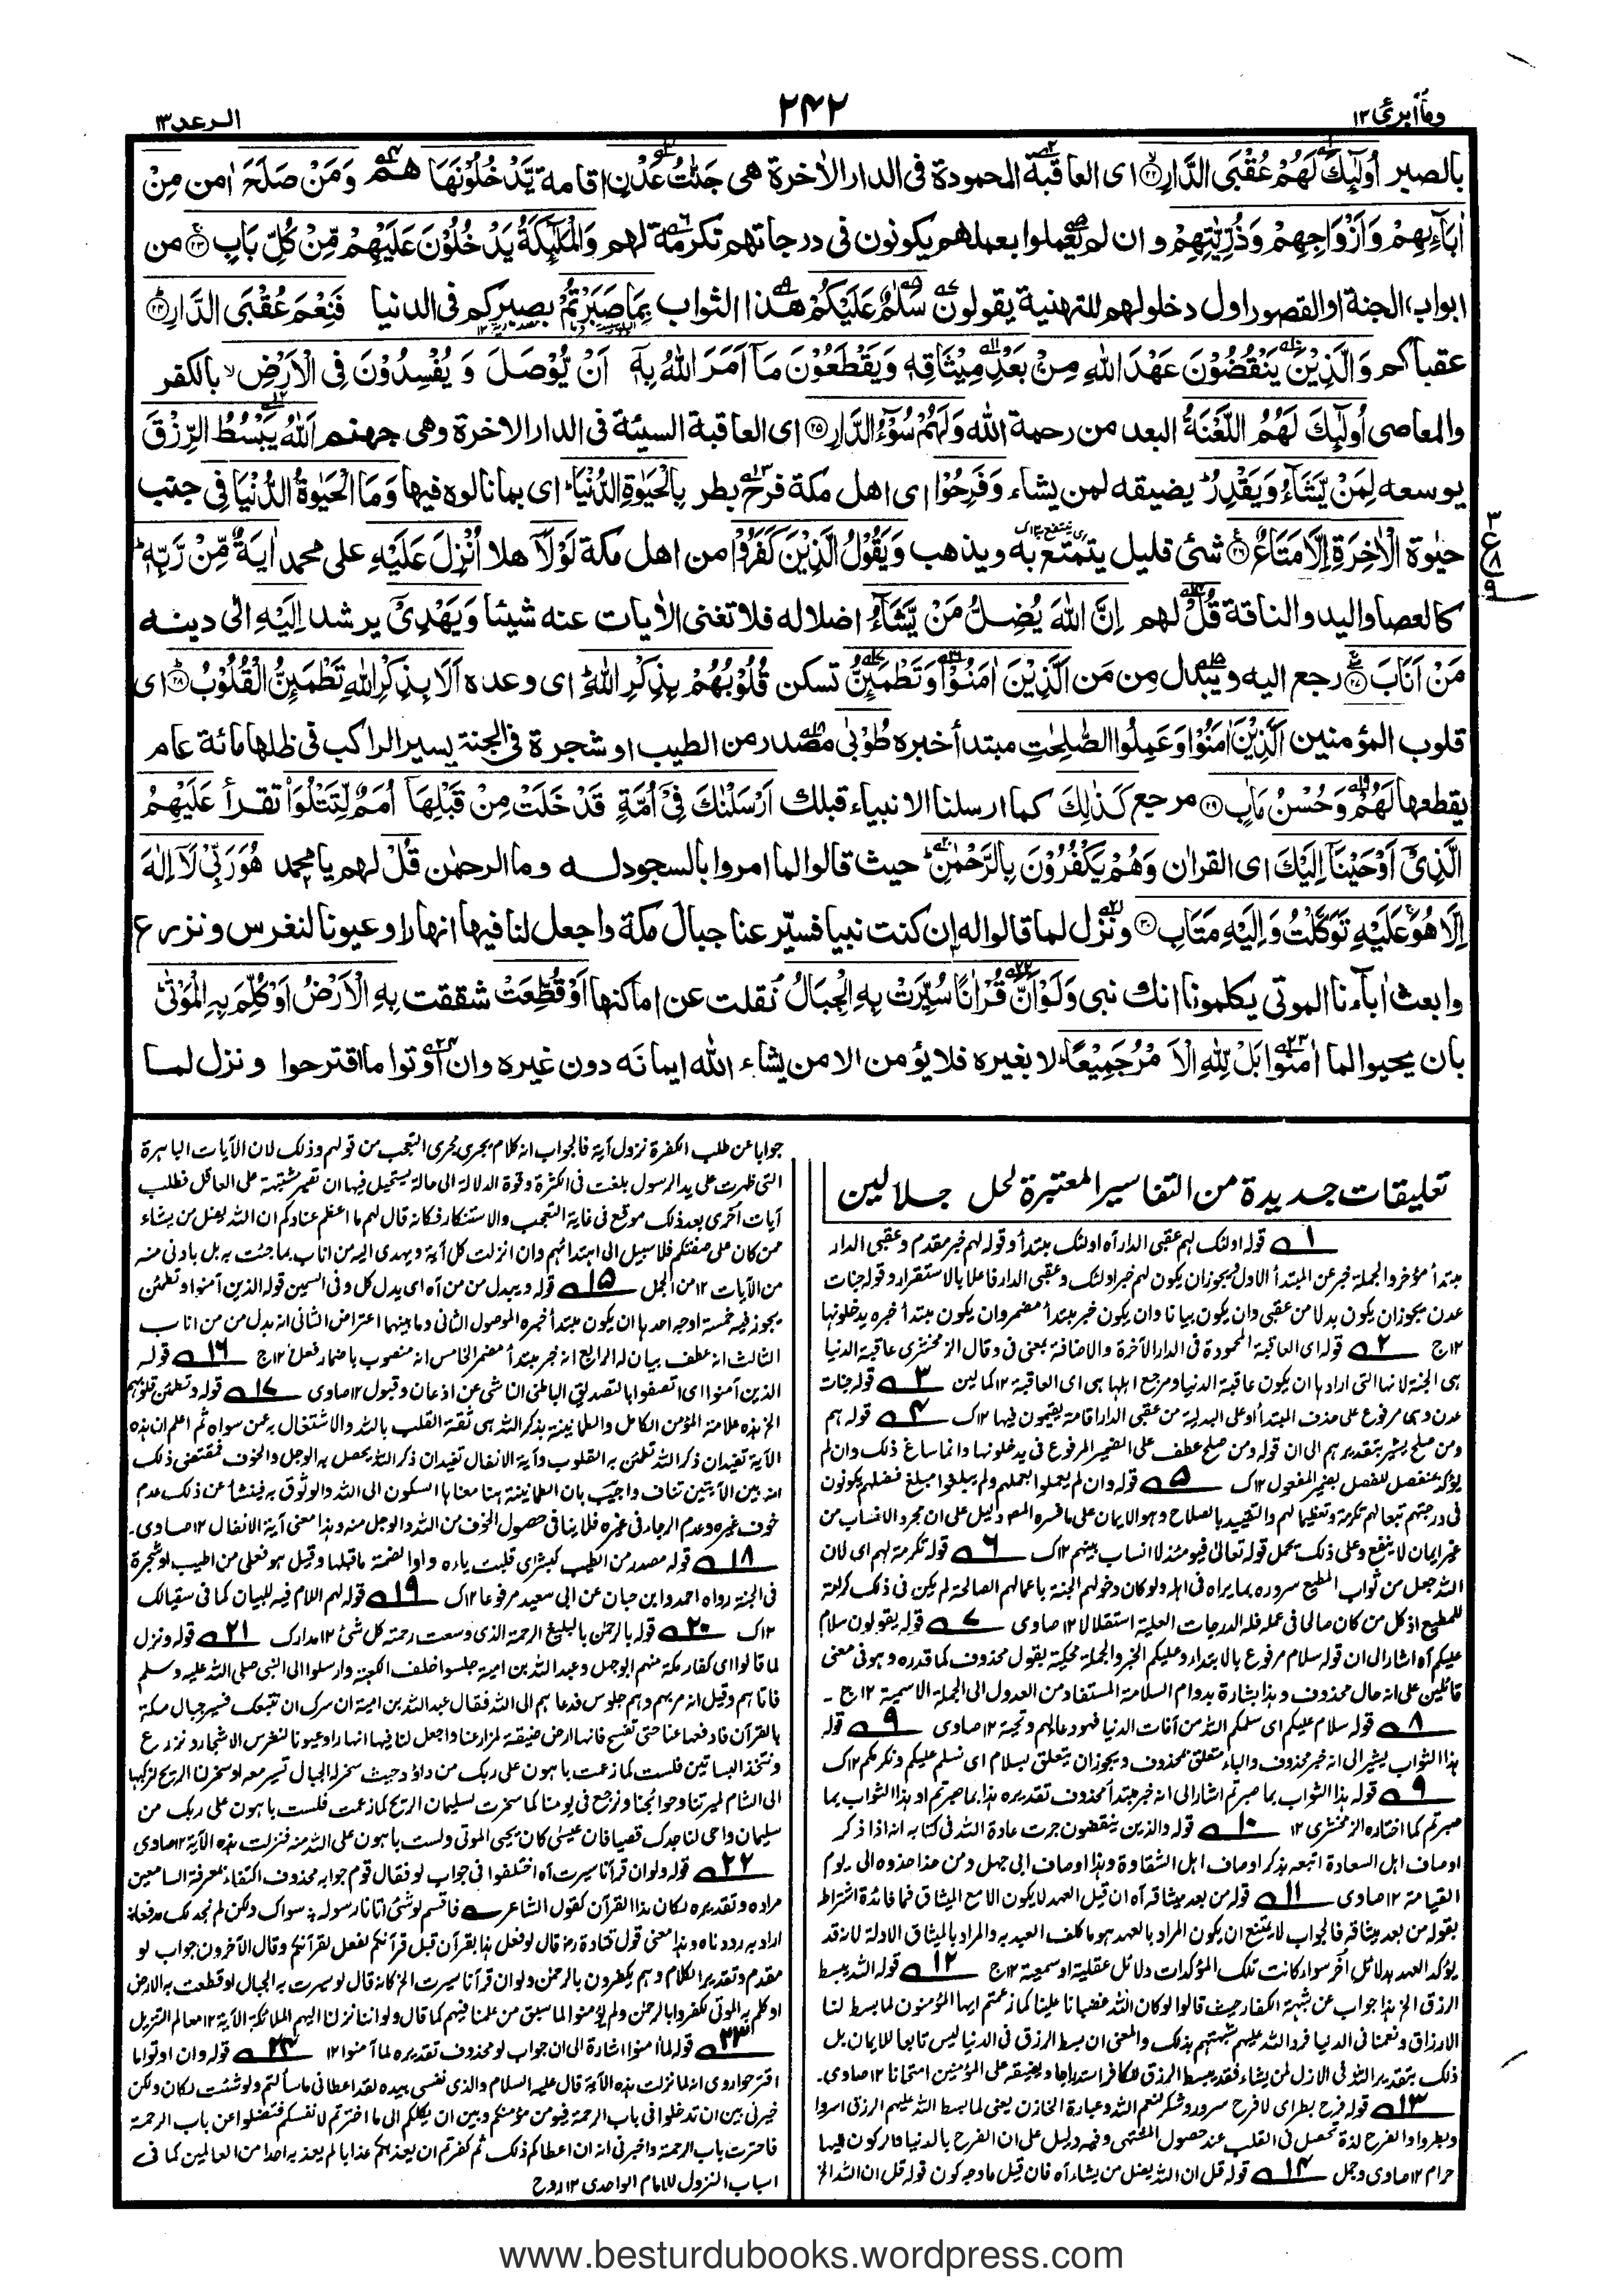 وما أبرئ ١٣
٢٤٢
الرعد ١٣
بالصبر أُولٰٓئِكَ لَهُمْ عُقْبَى الدَّارِ ﴿٢٢﴾ اى العاقبة المحمودة فى الدار الاٰخرة هى جَنّٰتُ عَدْنٍ اقامة يَّدْخُلُوْنَهَا هم وَمَنْ صَلَحَ اٰمن مِنْ
اٰبَآئِهِمْ وَاَزْوَاجِهِمْ وَذُرِّيّٰتِهِمْ و ان لم يعملوا بعملهم يكونون فى درجاتهم تكرمة لهم وَالْمَلٰٓئِكَةُ يَدْخُلُوْنَ عَلَيْهِمْ مِّنْ كُلِّ بَابٍ ﴿٢٣﴾ من
ابواب الجنة او القصور اول دخولهم للتهنية يقولون سَلٰمٌ عَلَيْكُمْ هذا الثواب بِمَا صَبَرْتُمْ بصبركم فى الدنيا فَنِعْمَ عُقْبَى الدَّارِ ﴿٢٤﴾
عقباكم وَالَّذِيْنَ يَنْقُضُوْنَ عَهْدَ اللهِ مِنْ بَعْدِ مِيْثَاقِهٖ وَيَقْطَعُوْنَ مَآ اَمَرَ اللهُ بِهٖٓ اَنْ يُّوْصَلَ وَ يُفْسِدُوْنَ فِى الْاَرْضِ بالكفر
والمعاصى اُولٰٓئِكَ لَهُمُ اللَّعْنَةُ البعد من رحمة الله وَلَهُمْ سُوْٓءُ الدَّارِ ﴿٢٥﴾ اى العاقبة السيئة فى الدار الاخرة وهى جهنم اَللهُ يَبْسُطُ الرِّزْقَ
يوسعه لِمَنْ يَّشَآءُ وَيَقْدِرُ يضيقه لمن يشاء وَفَرِحُوْا اى اهل مكة فرح بطر بِالْحَيٰوةِ الدُّنْيَا اى بما نالوه فيها وَمَا الْحَيٰوةُ الدُّنْيَا فِى جنب
حيٰوة الْاٰخِرَةِ اِلَّا مَتَاعٌ ﴿٢٦﴾ شئ قليل يتمتع به ويذهب وَيَقُوْلُ الَّذِيْنَ كَفَرُوْا من اهل مكة لَوْلَآ هلا اُنْزِلَ عَلَيْهِ على محمد اٰيَةٌ مِّنْ رَّبِّهٖ
كالعصا واليد والناقة قُلْ لهم اِنَّ اللهَ يُضِلُّ مَنْ يَّشَآءُ اضلاله فلا تغنى الاٰيات عنه شيئا وَيَهْدِىْٓ يرشد اِلَيْهِ الى دينه
مَنْ اَنَابَ ﴿٢٧﴾ رجع اليه ويبدل مِن مَن اَلَّذِيْنَ اٰمَنُوْا وَتَطْمَئِنُّ تسكن قُلُوْبُهُمْ بِذِكْرِ اللهِ اى وعده اَلَا بِذِكْرِ اللهِ تَطْمَئِنُّ الْقُلُوْبُ ﴿٢٨﴾ اى
قلوب المؤمنين اَلَّذِيْنَ اٰمَنُوْا وَعَمِلُوا الصّٰلِحٰتِ مبتدأ خبره طُوْبٰى مصدر من الطيب او شجرة فى الجنة يسير الراكب فى ظلها مائة عام
يقطعها لَهُمْ وَحُسْنُ مَاٰبٍ ﴿٢٩﴾ مرجع كَذٰلِكَ كما ارسلنا الانبياء قبلك اَرْسَلْنٰكَ فِىْٓ اُمَّةٍ قَدْ خَلَتْ مِنْ قَبْلِهَآ اُمَمٌ لِّتَتْلُوَا۟ تقرأ عَلَيْهِمُ
الَّذِىْٓ اَوْحَيْنَآ اِلَيْكَ اى القراٰن وَهُمْ يَكْفُرُوْنَ بِالرَّحْمٰنِ حيث قالوا لما امروا بالسجود له وما الرحمٰن قُلْ لهم يا محمد هُوَ رَبِّىْ لَآ اِلٰهَ
اِلَّا هُوَ عَلَيْهِ تَوَكَّلْتُ وَاِلَيْهِ مَتَابِ ﴿٣٠﴾ ونزل لما قالوا له إن كنت نبيا فسيّر عنا جبال مكة واجعل لنا فيها انهارا وعيونا لنغرس ونزرع
وابعث اٰباءنا الموتى يكلمونا انك نبى وَلَوْ اَنَّ قُرْاٰنًا سُيِّرَتْ بِهِ الْجِبَالُ نقلت عن اماكنها اَوْ قُطِّعَتْ شققت بِهِ الْاَرْضُ اَوْ كُلِّمَ بِهِ الْمَوْتٰى
بان يحيوا لما اٰمنوا بَلْ لِّلّٰهِ الْاَمْرُ جَمِيْعًا لا بغيره فلا يؤمن الا من يشاء الله ايمانه دون غيره وان أوتوا ما اقترحوا ونزل لما
٣
ع
٨
٩
تعليقات جديدة من التفاسير المعتبرة لحل جلالين
١ قوله اولئك لهم عقبى الدار اه اولئك مبتدأ وقوله لهم خبر مقدم وعقبى الدار
مبتدأ مؤخر والجملة خبر عن المبتدأ الاول ويجوز ان يكون لهم خبر اولئك وعقبى الدار فاعلا بالاستقرار وقوله جنات
عدن يجوز ان يكون بدلا من عقبى وان يكون بيانا وان يكون خبر مبتدأ مضمر وان يكون مبتدأ خبره يدخلونها
١٢ج ٢ قوله اى العاقبة المحمودة فى الدار الآخرة والاضافة بمعنى فى وقال الزمخشرى عاقبة الدنيا
هى الجنة لانها التى اراد بها ان يكون عاقبة الدنيا ومرجع اهلها هى اى العاقبة ١٢ كمالين ٣ قوله جنات
عدن وهى مرفوع على حذف المبتدأ او على البدلية من عقبى الدار اقامة يقيمون فيها ١٢ك ٤ قوله هم
ومن صلح يشير بتقديرهم الى ان قوله ومن صلح عطف على الضمير المرفوع فى يدخلونها وانما ساغ ذلك وان لم
يؤكد بمنفصل للفصل بضمير المفعول ١٢ك ٥ قوله وان لم يعملوا بعملهم ولم يبلغوا مبلغ فضلهم يكونون
فى درجتهم تبعا لهم تكرمة وتعظيما لهم والتقييد بالصلاح وهو الايمان على ما فسره المصـ دليل على ان مجرد الانتساب من
غير ايمان لا ينفع وعلى ذلك يحمل قوله تعالى فيومئذ لا انساب بينهم ١٢ك ٦ قوله تكرمة لهم اى لان
الله جعل من ثواب المطيع سروره بما يراه فى اهله ولو كان دخولهم الجنة باعمالهم الصالحة لم يكن فى ذلك كرامة
للمطيع اذ كل من كان صالحا فى عمله فله الدرجات العلية استقلالا ١٢ صاوى ٧ قوله يقولون سلام
عليكم اه اشار الى ان قوله سلام مرفوع بالابتداء وعليكم الخبر والجملة محكية بقول محذوف كما قدره وهو فى معنى
قائلين على انه حال محذوف وهذا بشارة بدوام السلامة المستفاد من العدول الى الجملة الاسمية ١٢ ج ـ
٨ قوله سلام عليكم اى سلمكم الله من آفات الدنيا فهو دعاء لهم وتحية ١٢ صاوى ٩ قوله
هذا الثواب يشير الى انه خبر محذوف والباء متعلق بمحذوف ويجوز ان يتعلق بسلام اى نسلم عليكم ونكرمكم ١٢ك
٩ قوله هذا الثواب بما صبرتم اشار الى انه خبر مبتدأ محذوف تقديره هذا بما صبرتم او هذا الثواب بما
صبرتم كما اختاره الزمخشرى ١٢ ١٠ قوله والذين ينقضون جرت عادة الله فى كتابه انه اذا ذكر
اوصاف اهل السعادة اتبعه بذكر اوصاف اهل الشقاوة وهذا اوصاف ابى جهل ومن حذا حذوه الى يوم
القيامة ١٢ صاوى ١١ قوله من بعد ميثاقه اه ان قيل العهد لا يكون الا مع الميثاق فما فائدة اشتراط
بقوله من بعد ميثاقه فالجواب لا يمتنع ان يكون المراد بالعهد هو ما كلف العبد به والمراد بالميثاق الادلة لانه قد
يؤكد العهد بدلائل أخر سواء كانت تلك المؤكدات دلائل عقلية او سمعية ١٢ج ١٢ قوله الله يبسط
الرزق الخ هذا جواب عن شبهة الكفار حيث قالوا لو كان الله غضبانا علينا كما زعمتم ايها المؤمنون لما بسط لنا
الارزاق ونعمنا فى الدنيا فرد الله عليهم شبهتهم بذلك والمعنى ان بسط الرزق فى الدنيا ليس تابعا للايمان بل
ذلك بتقدير الله فى الازل لمن يشاء فقد يبسط الرزق للكافر استدراجا ويضيقه على المؤمنين امتحانا ١٢ صاوى ـ
١٣ قوله فرح بطر اى لا فرح سرور وشكر لنعم الله وعبارة الخازن يعنى لما بسط الله عليهم الرزق اشروا
وبطروا والفرح لذة تحصل فى القلب عند حصول المشتهى وفيه دليل على ان الفرح بالدنيا والركون اليها
حرام ١٢ صاوى وجمل ١٤ قوله قل ان الله يضل من يشاء اه فان قيل ما وجه كون قوله قل ان الله الخ
جوابا عن طلب الكفرة نزول آية فالجواب انه كلام يجرى مجرى التعجب من قولهم وذلك لان الآيات الباهرة
التى ظهرت على يد الرسول بلغت فى الكثرة وقوة الدلالة الى حالة يستحيل فيها ان تصير مشتبهة على العاقل فطلب
آيات أخرى بعد ذلك موقع فى غاية التعجب والاستنكار فكانه قال لهم ما اعظم عنادكم ان الله يضل من يشاء
ممن كان على صفتكم فلا سبيل الى اهتدائهم وان انزلت كل آية ويهدى اليه من اناب بما جئت به بل بادنى منه
من الآيات ١٢ من الجمل ١٥ قوله ويبدل من من اه اى بدل كل وفى السمين قوله الذين آمنوا وتطمئن
يجوز فيه خمسة اوجه احدها ان يكون مبتدأ خبره الموصول الثانى وما بينهما اعتراض الثانى انه بدل من من اناب
الثالث انه عطف بيان له الرابع انه خبر مبتدأ مضمر الخامس انه منصوب باضمار فعل ١٢ج ١٦ قوله
الذين آمنوا اى اتصفوا بالتصديق الباطنى الناشى عن اذعان وقبول ١٢ صاوى ١٧ قوله وتطمئن قلوبهم
الخ هذه علامة المؤمن الكامل والطمانينة بذكر الله هى ثقة القلب بالله والاشتغال به عن سواه ثم اعلم ان هذه
الآية تفيد ان ذكر الله تطمئن به القلوب وآية الانفال تفيد ان ذكر الله يحصل به الوجل والخوف فمقتضى ذلك
انه بين الآيتين تناف واجيب بان الطمانينة هنا معناها السكون الى الله والوثوق به فينشأ عن ذلك عدم
خوف غيره وعدم الرجاء فى غيره فلا ينافى حصول الخوف من الله والوجل منه وهذا معنى آية الانفال ١٢ صاوى ـ
١٨ قوله مصدر من الطيب كبشرى قلبت ياءه واوا لضمة ما قبلها وقيل هو فعلى من اطيب او شجرة
فى الجنة رواه احمد وابن حبان عن ابى سعيد مرفوعا ١٢ك ١٩ قوله لهم اللام فيه للبيان كما فى سقيا لك
١٢ك ٢٠ قوله بالرحمٰن بالبليغ الرحمة الذى وسعت رحمته كل شئ ١٢ مدارك ٢١ قوله ونزل
لما قالوا اى كفار مكة منهم ابو جهل وعبد الله بن امية جلسوا خلف الكعبة وارسلوا الى النبى صلى الله عليه وسلم
فاتاهم وقيل انه مر بهم وهم جلوس فدعاهم الى الله فقال عبد الله بن امية ان سرك ان نتبعك فسير جبال مكة
بالقرآن فادفعها عنا حتى تفسح فانها ارض ضيقة لمزارعنا واجعل لنا فيها انهارا وعيونا لنغرس الاشجار ونزرع
ونتخذ البساتين فلست كما زعمت باهون على ربك من داؤد حيث سخر له الجبال تسير معه او سخر لنا الريح لنركبها
الى الشام لميرتنا وحوائجنا ونرجع فى يومنا كما سخرت سليمان الريح كما زعمت فلست باهون على ربك من
سليمان واحى لنا جدك قصيا فان عيسى كان يحيى الموتى ولست باهون على الله منه فنزلت هذه الآية ١٢ صاوى
٢٢ قوله ولو ان قرآنا سيرت اه اختلفوا فى جواب لو فقال قوم جوابه محذوف اكتفاء بمعرفة السامعين
مراده وتقديره لكان هذا القرآن كقول الشاعر فاقسم لو شئ اتانا رسوله سواك ولكن لم نجد لك مدفعا
اراد به رددناه وهذا معنى قول قتادة رض قال لو فعل هذا بقرآن قبل قرآنكم لفعل بقرآنكم وقال الآخرون جواب لو
مقدم وتقدير الكلام وهم يكفرون بالرحمٰن ولو ان قرآنا سيرت الخ كانه قال لو سيرت به الجبال او قطعت به الارض
او كلم به الموتى لكفروا بالرحمٰن ولم يؤمنوا لما سبق من علمنا فيهم كما قال ولو اننا نزلنا اليهم الملائكة الآية ١٢ معالم التنزيل
٢٣ قوله لما آمنوا اشارة الى ان جواب لو محذوف تقديره لما آمنوا ١٢ ٢٤ قوله وان اوتوا ما
اقترحوا روى انه لما نزلت هذه الآية قال عليه السلام والذى نفسى بيده لقد اعطانى ما سألتم ولو شئت لكان ولكن
خيرنى بين ان تدخلوا فى باب الرحمة فيؤمن مؤمنكم وبين ان يكلكم الى ما اخترتم لانفسكم فتضلوا عن باب الرحمة
فاخترت باب الرحمة واخبرنى انه ان اعطاكم ذلك ثم كفرتم ان يعذبكم عذابا لم يعذبه احدا من العالمين كما فى
اسباب النزول للامام الواحدى ١٢ روح
www.besturdubooks.wordpress.com